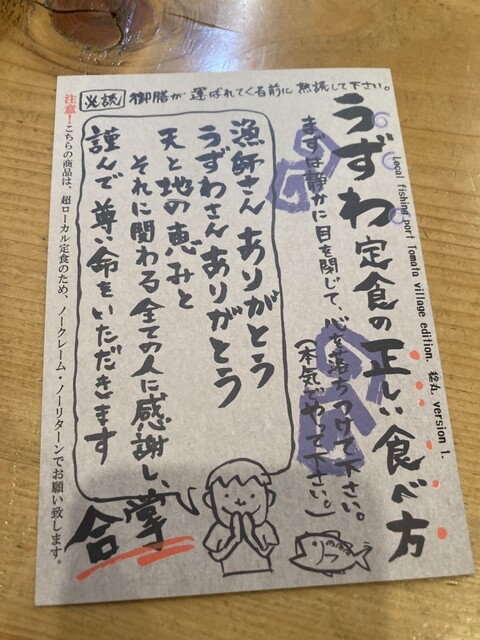 必読 御膳が 運ばれてくる前に 熟読して下さい。
うずわ定食の正しい食べ方
Local fishing port Tomata village edition. 稔丸 version 1.
まずは静かに目を閉じて、心を落ちつけて下さい。
(本気でやって下さい。)
漁師さん ありがとう
うずわさん ありがとう
天と地の恵みと
それに関わる全ての人に感謝し、
謹んで 尊い命をいただきます
合掌
注意!こちらの商品は、超ローカル定食のため、ノークレーム・ノーリターンでお願い致します。